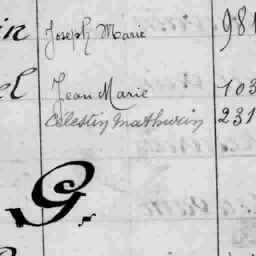 in Joseph Marie 981
el Jean Marie 103
Celestin Mathurin 231
G.